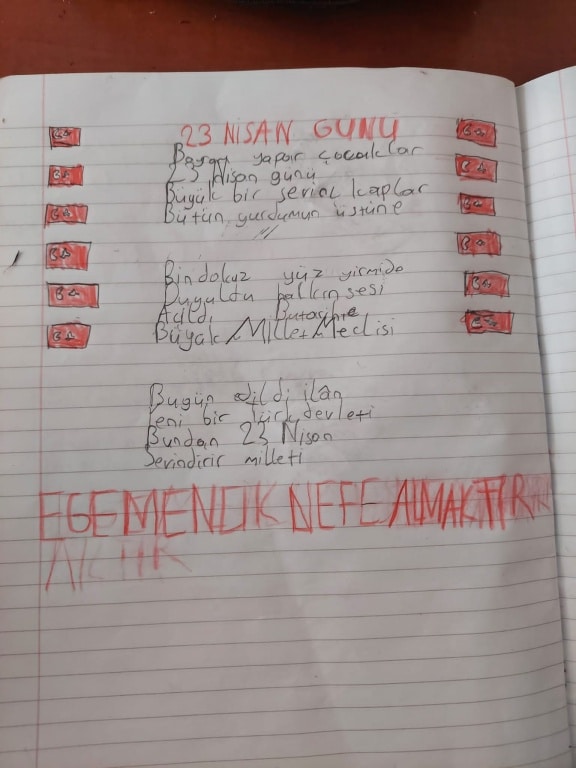 23 NİSAN GÜNÜ
Bayram yapar çocuklar
23 Nisan günü
Büyük bir sevinç kaplar
Bütün yurdumun üstüne
Bin dokuz yüz yirmide
Duyuldu halkın sesi
Açıldı Bu tarihte
Büyük Millet Meclisi
Bugün edildi ilan
Yeni bir Türk devleti
Bundan 23 Nisan
Sevindirir milleti
EGEMENLİK NEFE ALMAKTIR